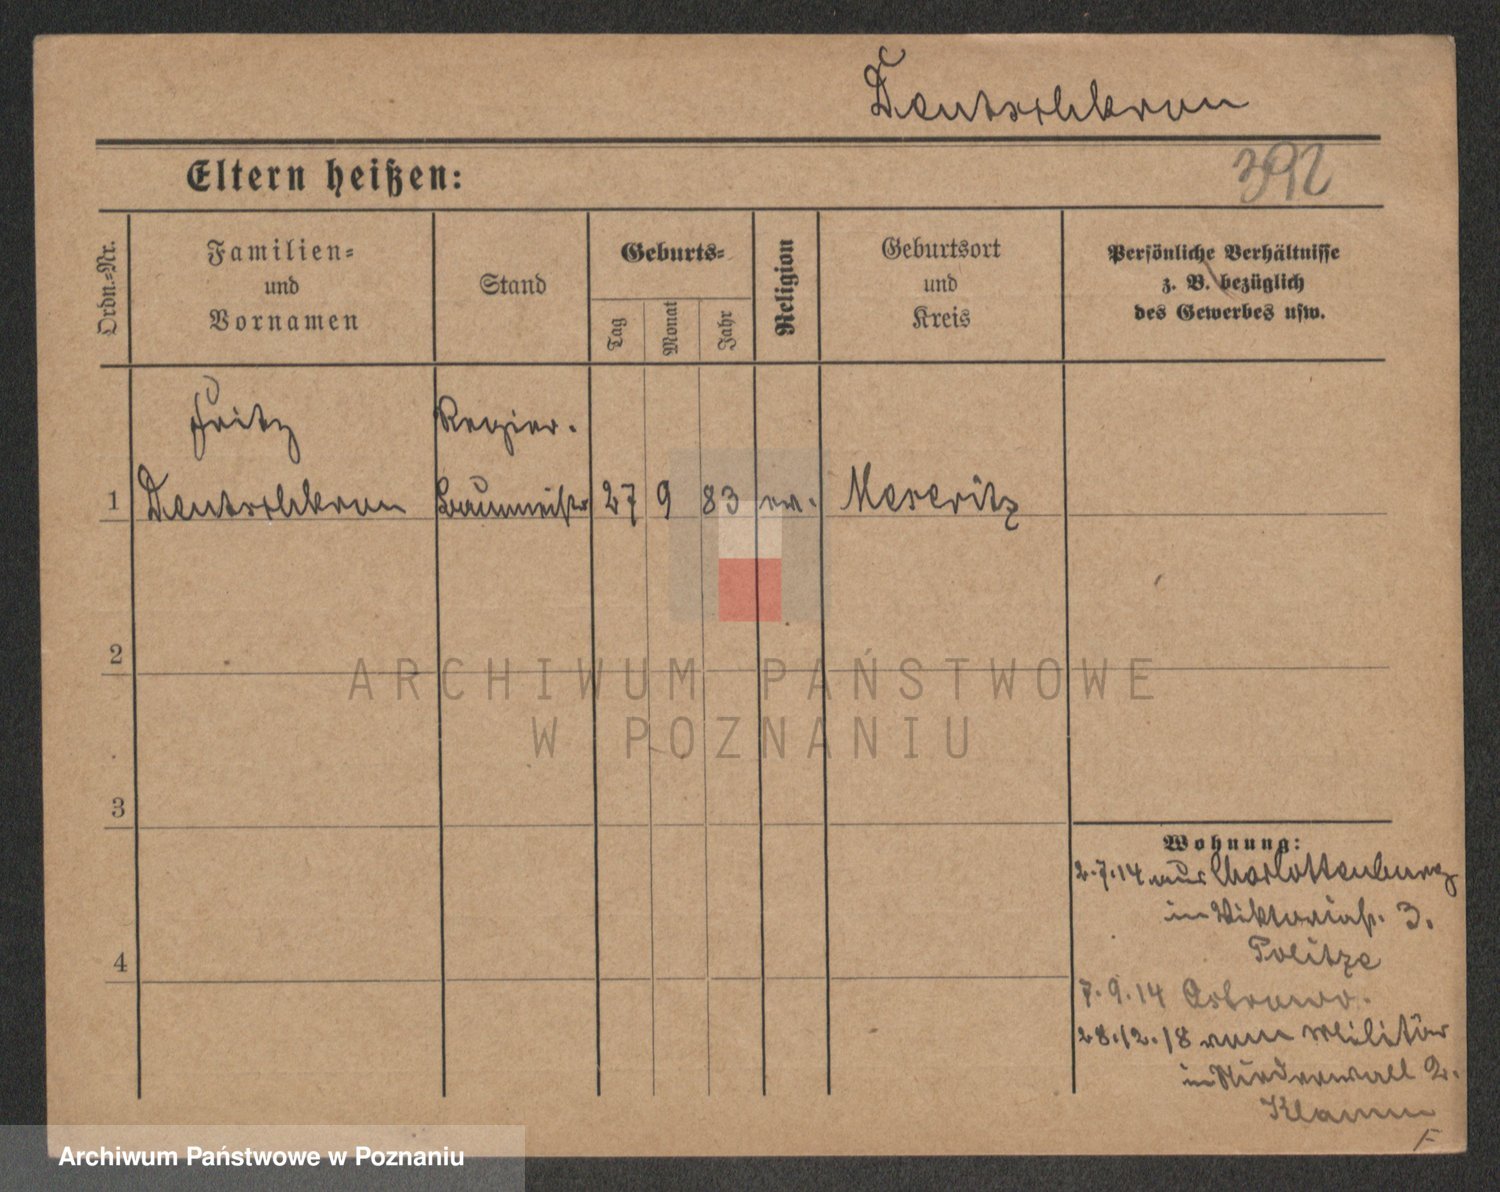 Deutschkron
Eltern heißen:
392
Ordn.-Nr.
Familien-
und
Vornamen
Stand
Geburts-
Tag
Monat
Jahr
Religion
Geburtsort
und
Kreis
Persönliche Verhältnisse
z. B. bezüglich
des Gewerbes usw.
Fritz Regier.
1 Deutschkron Baumeister 27 9 83 Meseritz
2
3
4
Wohnung:
2.7.14 aus Charlottenburg
in Viktoriast. 3.
7.9.14 Ostrowo.
28.12.18 vom Militär
in Niederwall 2.
Klamm
F
ARCHIWUM PAŃSTWOWE
W POZNANIU
Archiwum Państwowe w Poznaniu